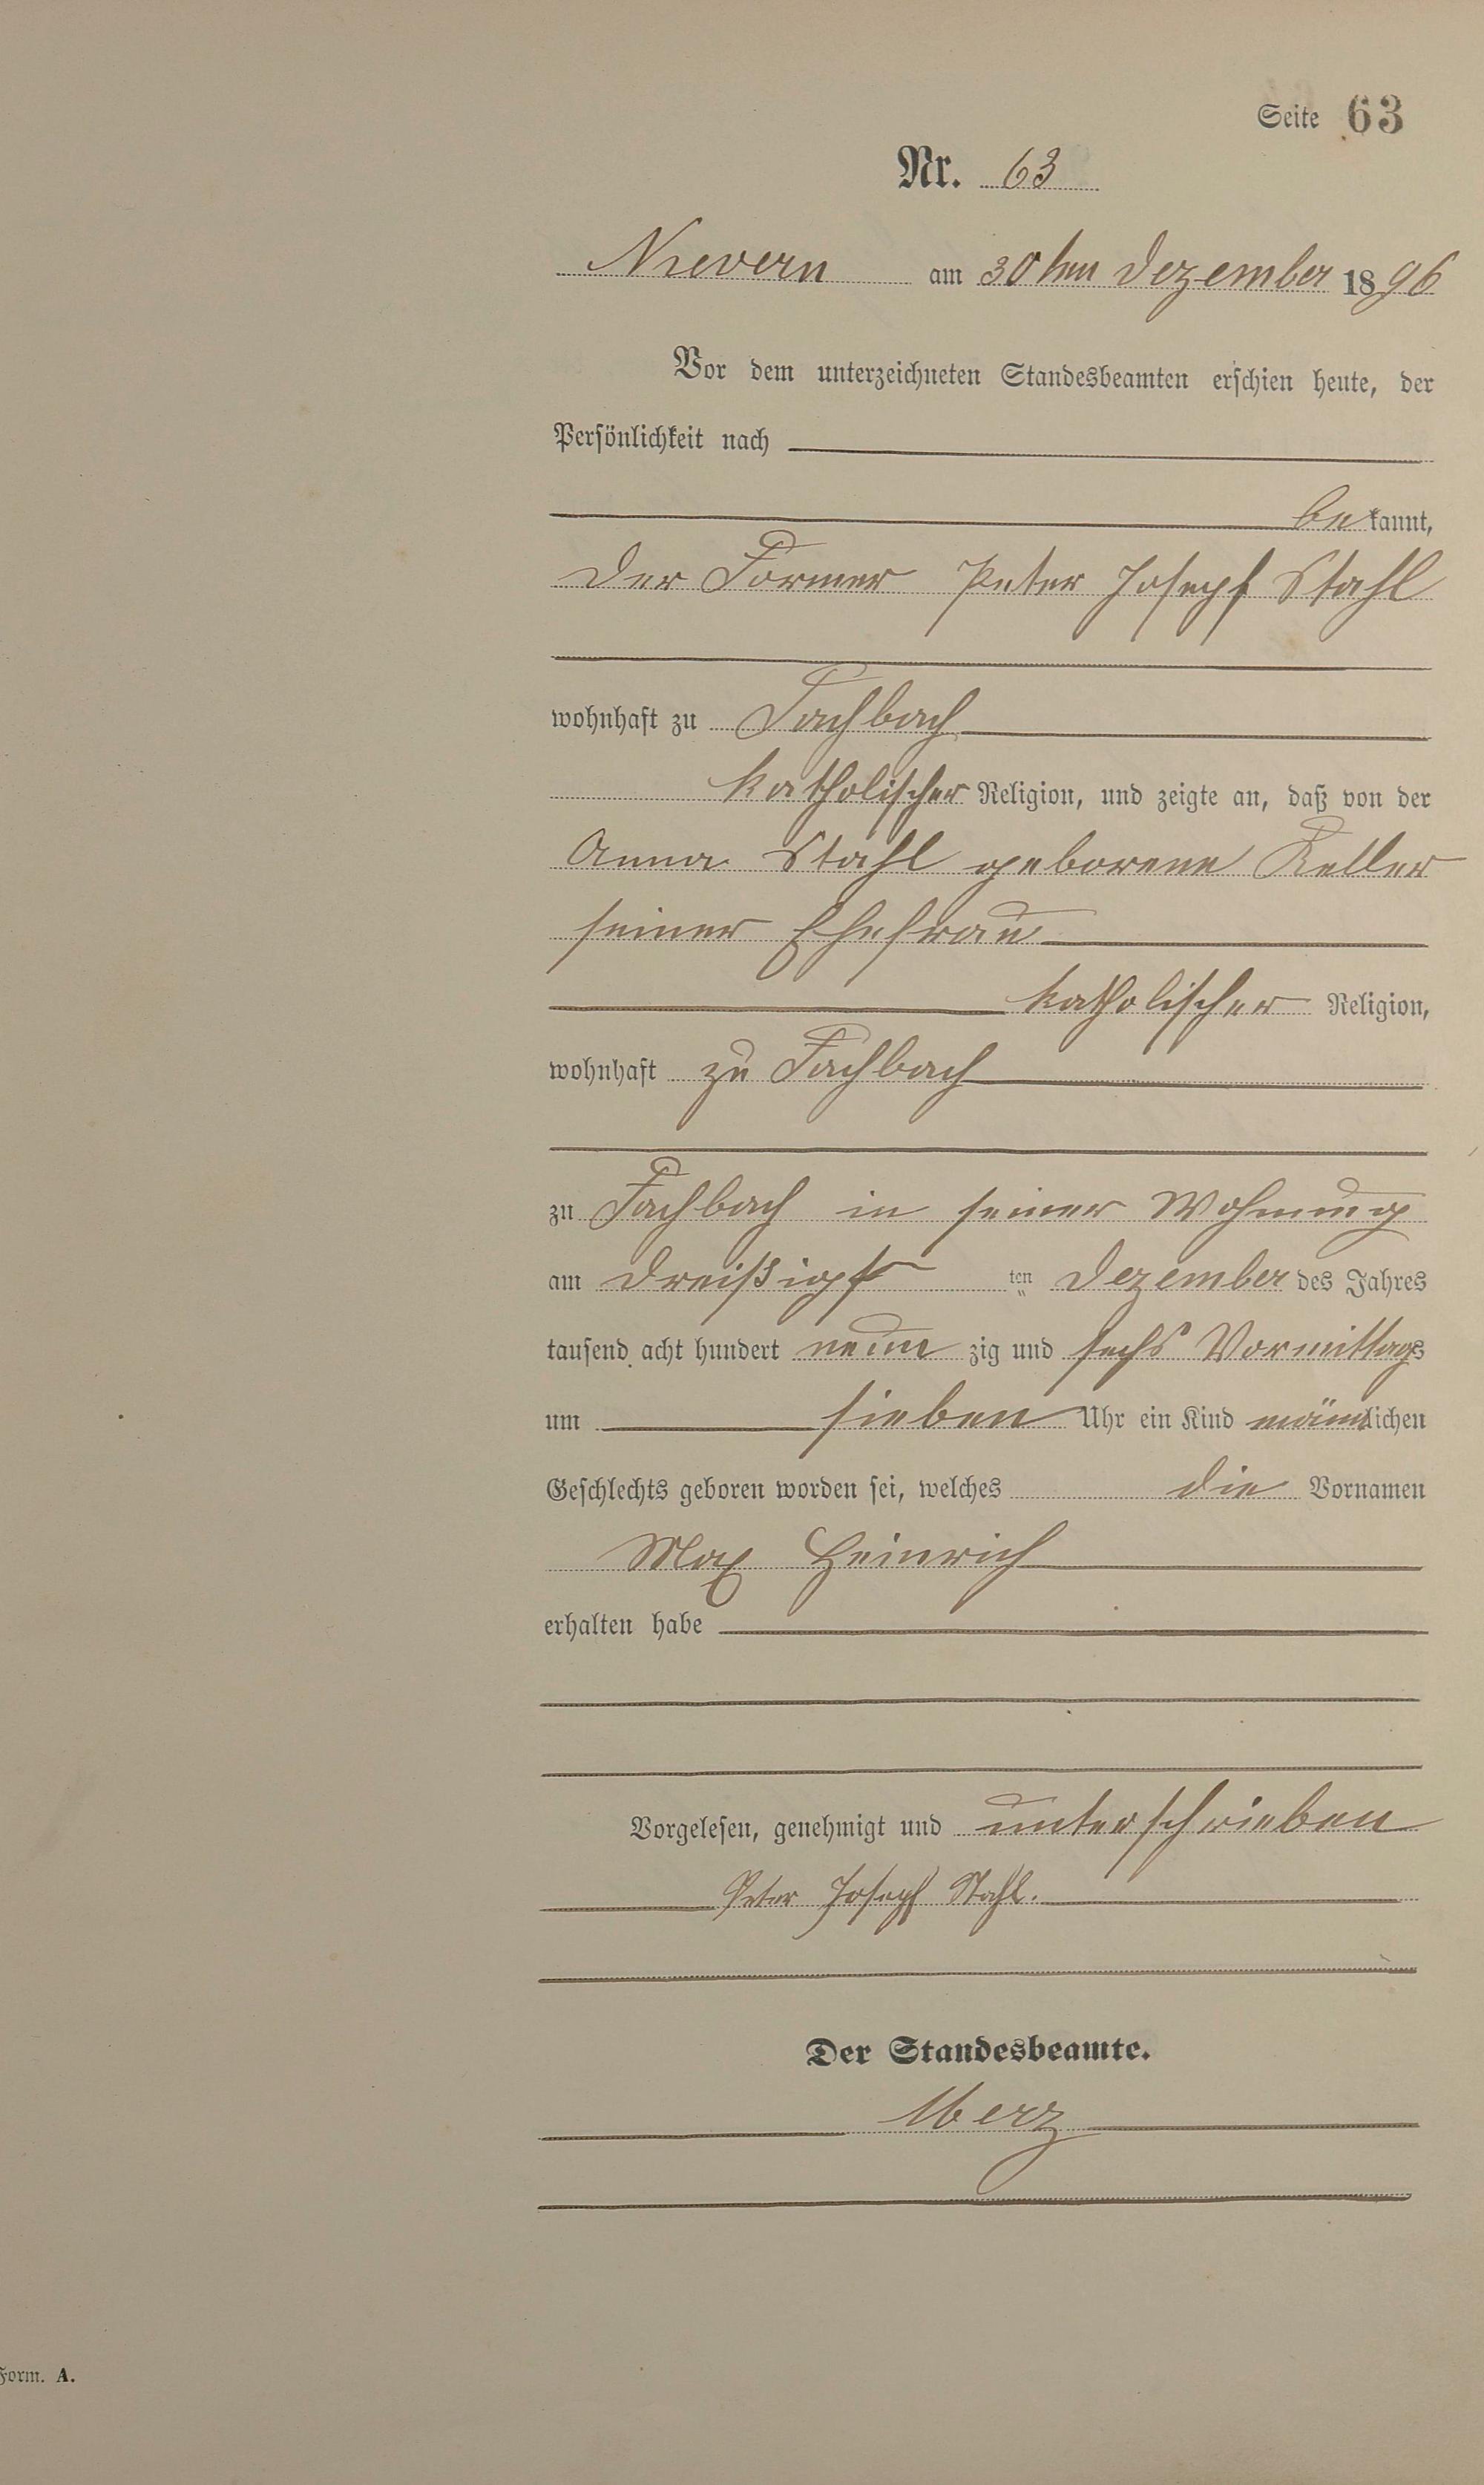 Seite 63
Nr. 63
Nievern am 30ten Dezember 1896
Vor dem unterzeichneten Standesbeamten erschien heute, der
Persönlichkeit nach
bekannt,
der Former Peter Joseph Stahl
wohnhaft zu Fachbach
katholischer Religion, und zeigte an, daß von der
Anna Stahl geborene Keller
seiner Ehefrau
katholischer Religion,
wohnhaft zu Fachbach
zu Fachbach in seiner Wohnung
am dreißigst ten Dezember des Jahres
tausend acht hundert neun zig und sechs Vormittags
um sieben Uhr ein Kind männlichen
Geschlechts geboren worden sei, welches die Vornamen
Max Heinrich
erhalten habe
Vorgelesen, genehmigt und unterschrieben
Peter Joseph Stahl.
Der Standesbeamte.
Merz
Form. A.